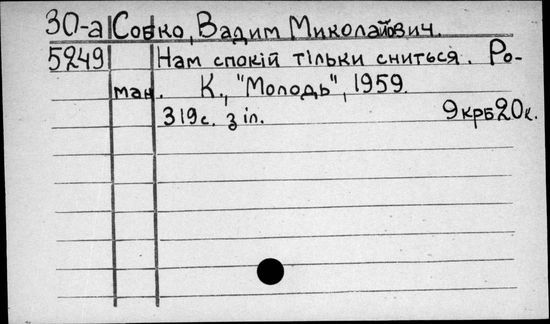 30-а Собко, Вадим Миколайович.
5249 Нам спокій тільки сниться. Ро-
ман. К., "Молодь", 1959.
319с. з іл. 9 крб 20 к.